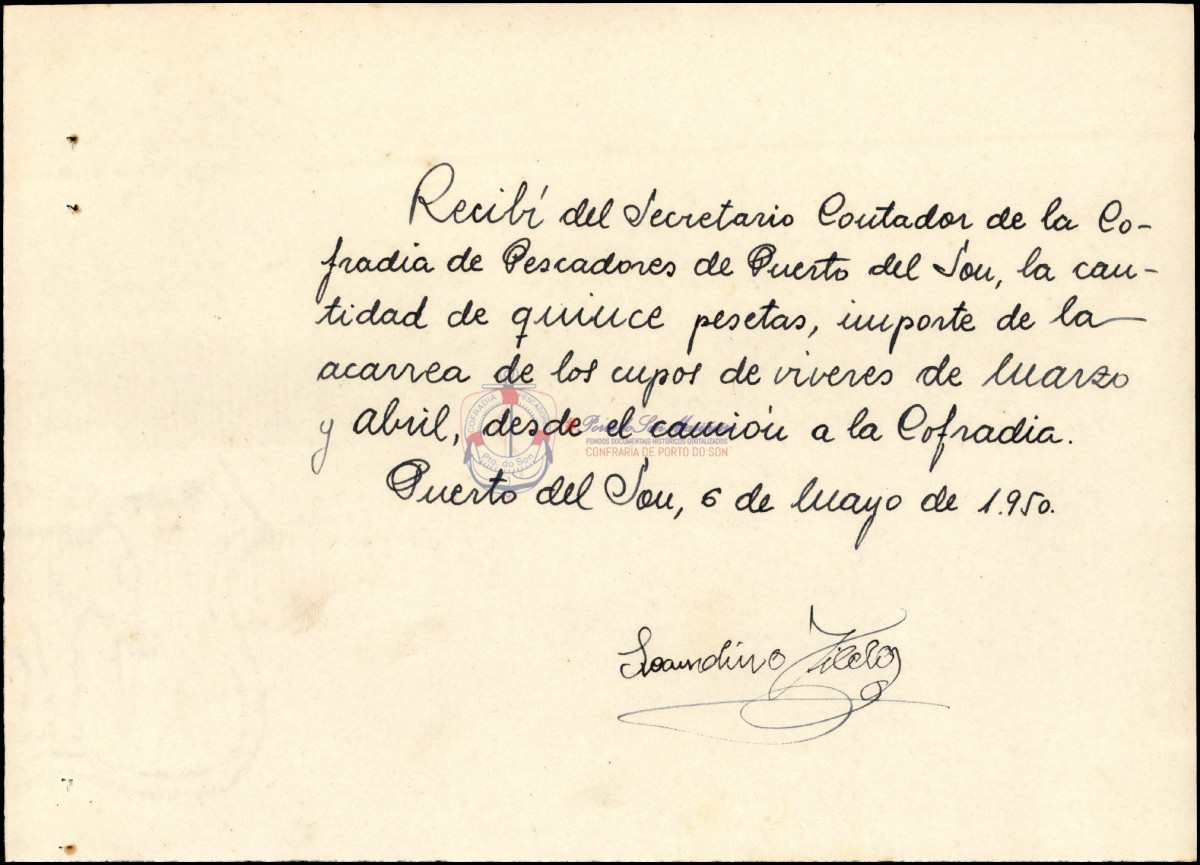 Recibí del Secretario Contador de la Co-
fradia de Pescadores de Puerto del Son, la can-
tidad de quince pesetas, importe de la
acarrea de los cupos de viveres de Marzo
y Abril, desde el camión a la Cofradia.
COFRADIA PESCADORES
Pto. do Son
FONDOS DOCUMENTAIS HISTÓRICOS DIXITALIZADOS
CONFRARÍA DE PORTO DO SON
Puerto del Son, 6 de Mayo de 1.950.